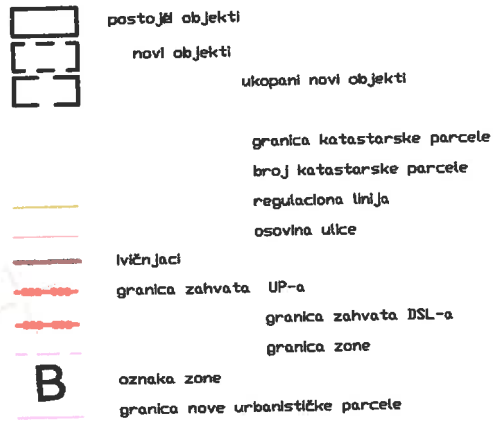 postojći objekti
novi objekti
ukopani novi objekti
granica katastarske parcele
broj katastarske parcele
regulaciona linija
osovina ulice
ivičnjaci
granica zahvata UP-a
granica zahvata DSL-a
granica zone
B oznaka zone
granica nove urbanističke parcele